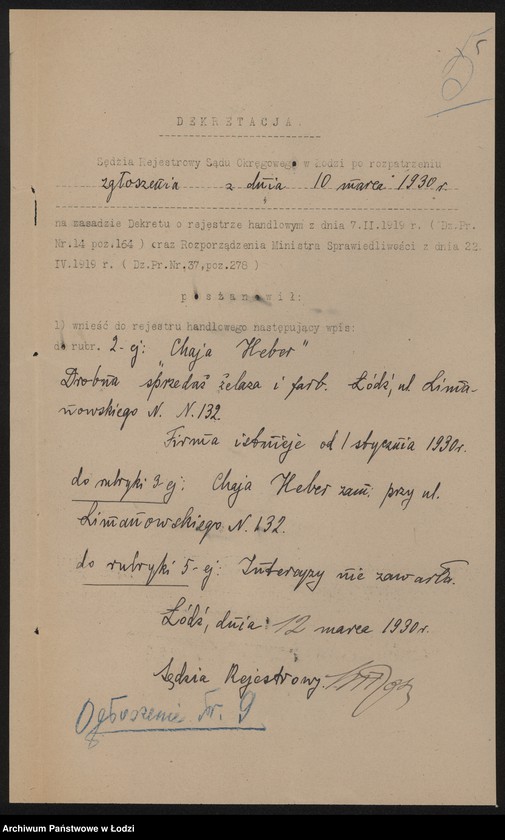 5
DEKRETACJA.
Sędzia Rejestrowy Sądu Okręgowego w Łodzi po rozpatrzeniu
zgłoszenia z dnia 10 marca 1930 r.
na zasadzie Dekretu o rejestrze handlowym z dnia 7.II.1919 r. ( Dz.Pr.
Nr.14 poz.164 ) oraz Rozporządzenia Ministra Sprawiedliwości z dnia 22.
IV.1919 r. ( Dz.Pr.Nr.37,poz.278 )
postanowił:
1) wnieść do rejestru handlowego następujący wpis:
do rubr. 2-ej: "Chaja Heber"
Drobna sprzedaż żelaza i farb. Łódź, ul. Lima-
nowskiego N. N.132.
Firma istnieje od 1 stycznia 1930r.
do rubryki 3-ej: Chaja Heber zam. przy ul.
Limanowskiego N.132.
do rubryki 5-ej: Intercyzy nie zawarła.
Łódź, dnia 12 marca 1930r.
Sędzia Rejestrowy:
Ogłoszenie Nr. 9
Archiwum Państwowe w Łodzi